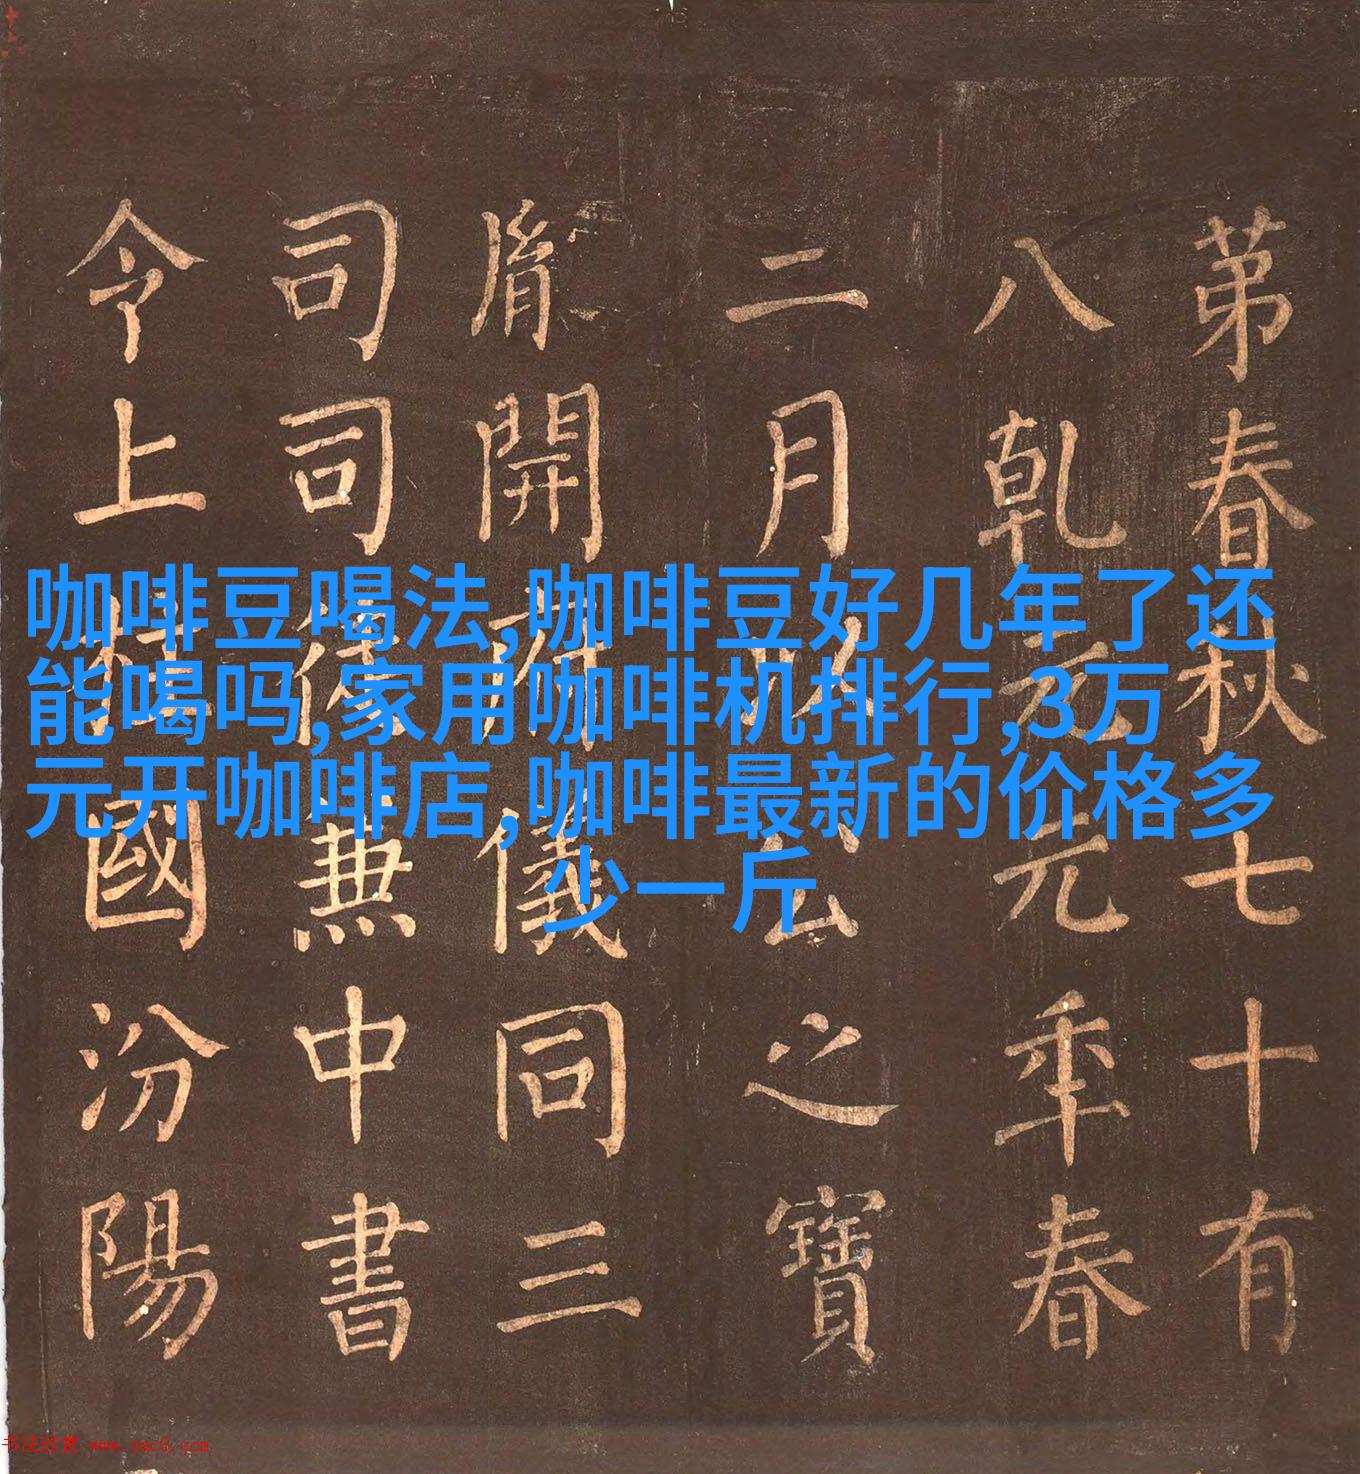 咖啡豆喝法,咖啡豆好几年了还
能喝吗,家用咖啡机排行,3万
元开咖啡店,咖啡最新的价格多
少一斤
苐春秋七十有
八乾元元年春
二月以公之寶
胤開府儀同三
司司徒兼中書
令上柱國汾陽
书法欣赏 www.yac8.com